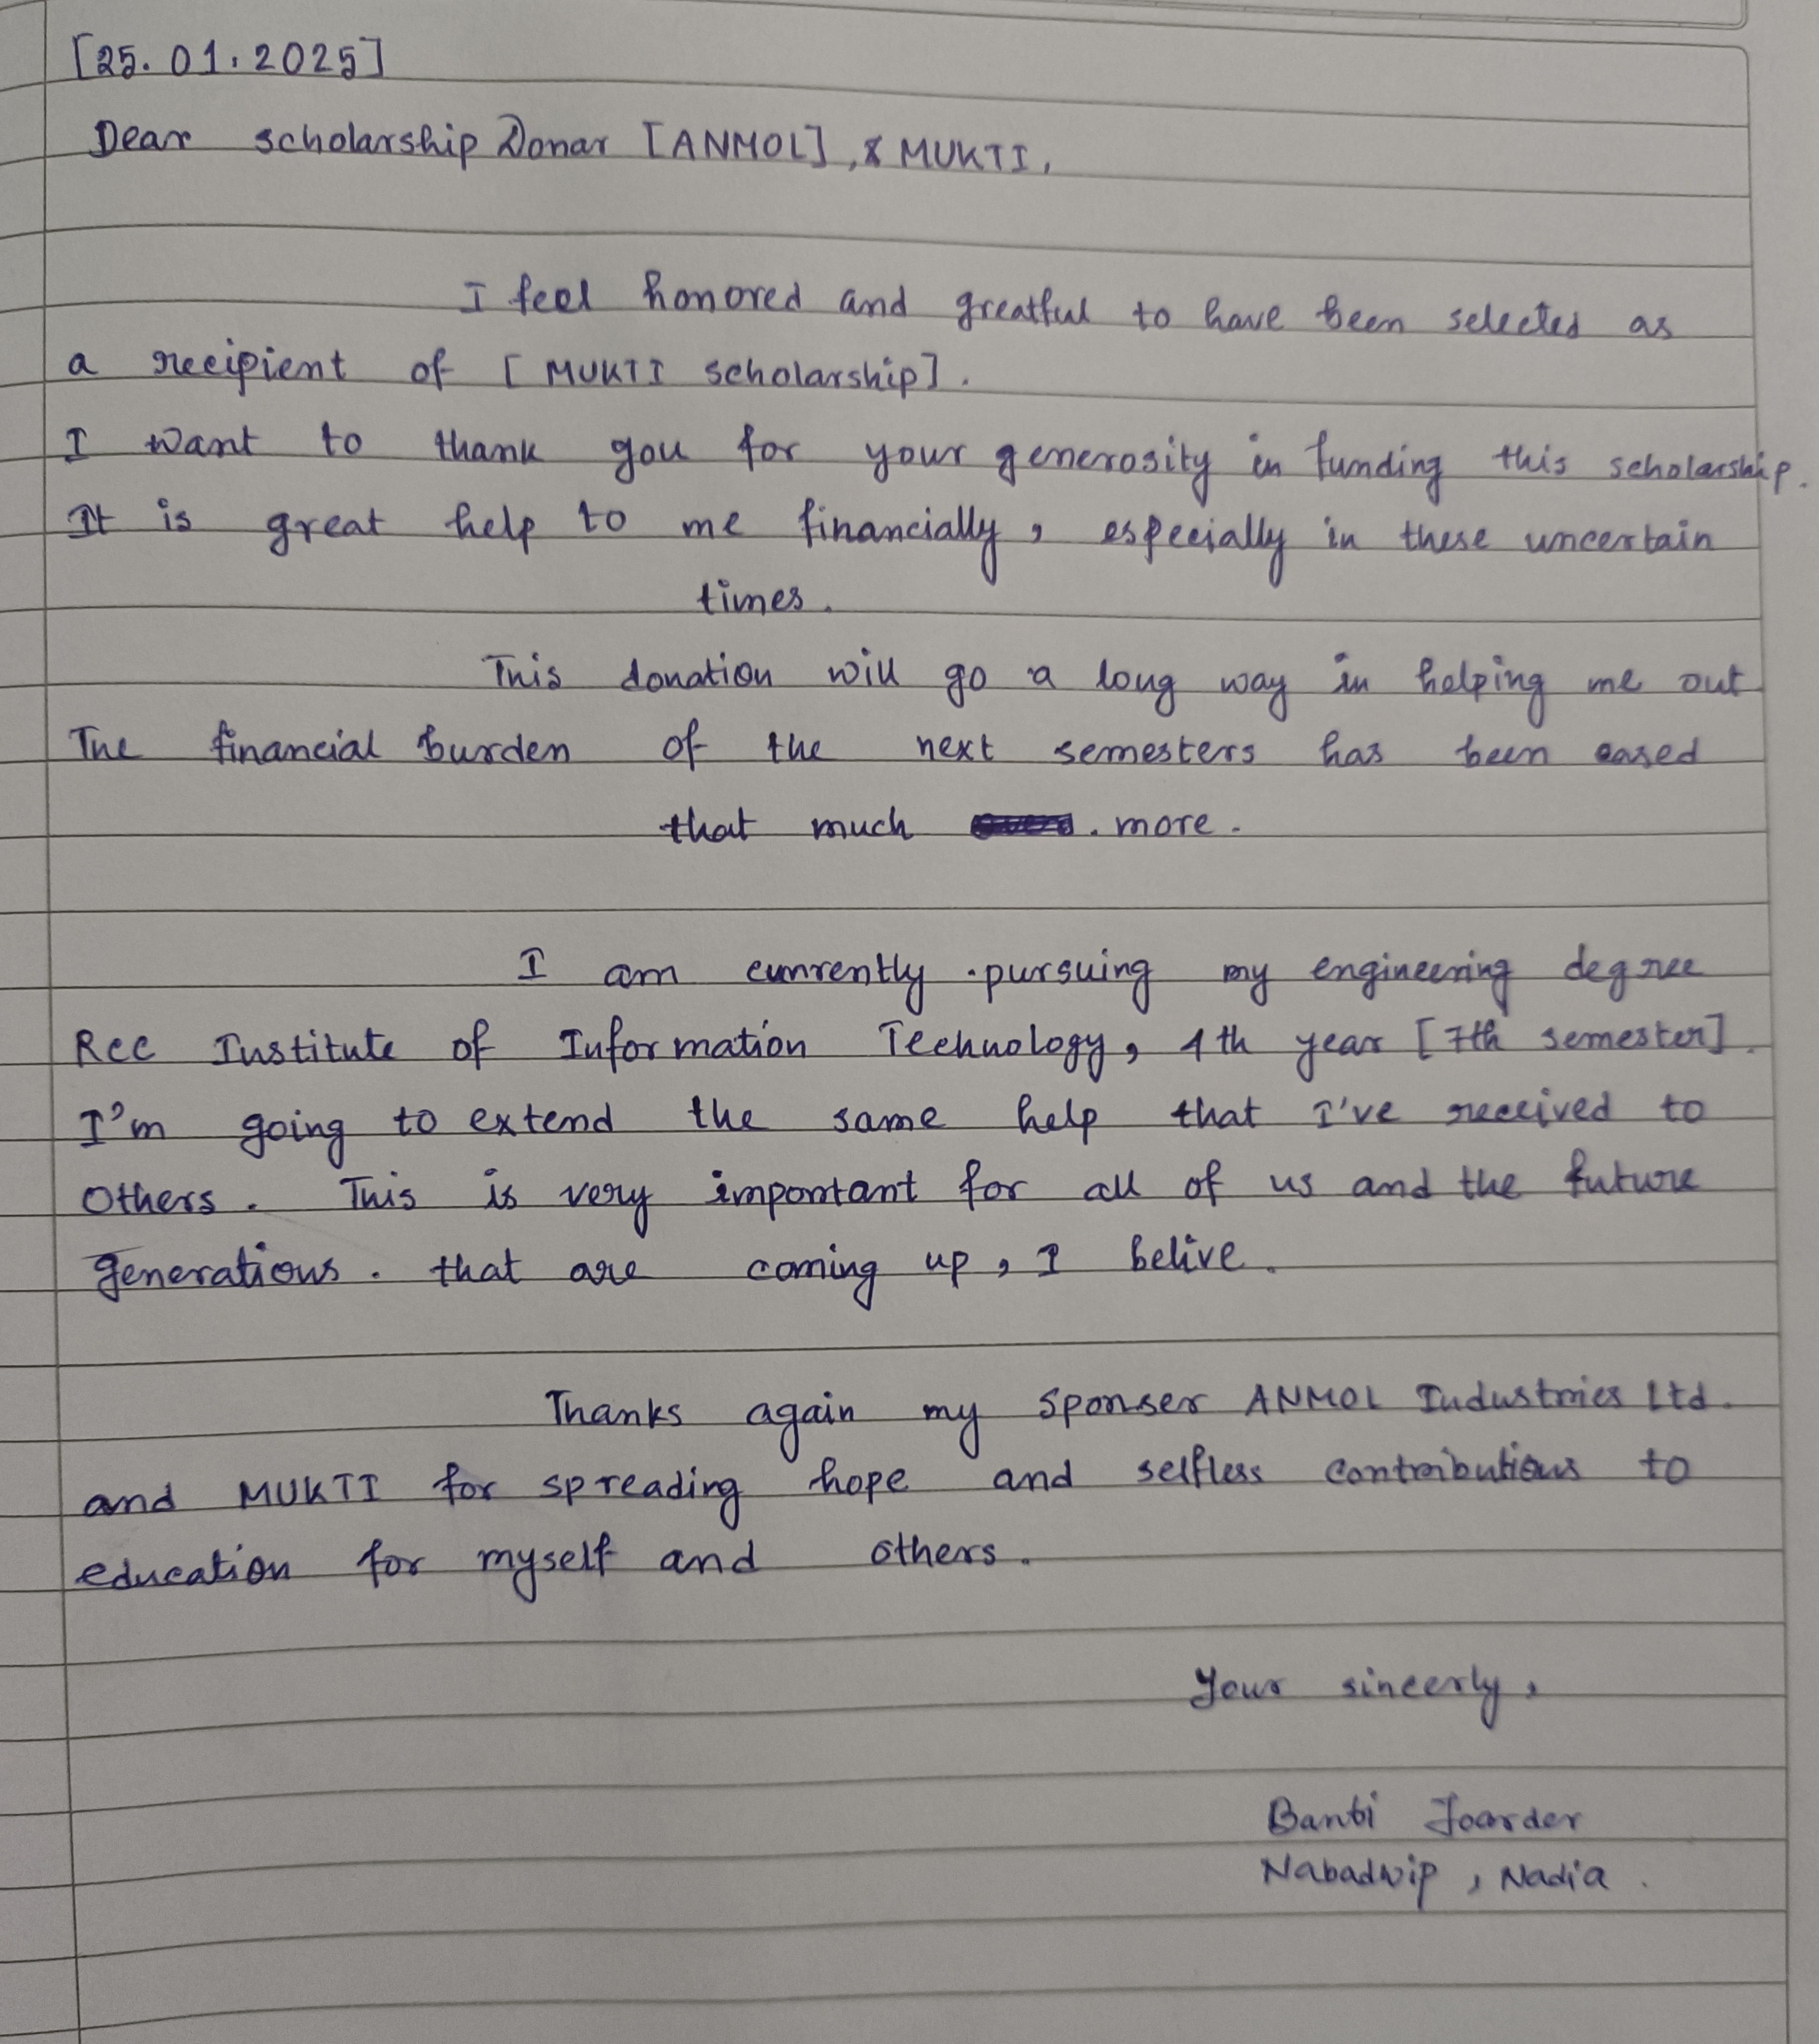 [25.01.2025]
Dear scholarship Donar [ANMOL], & MUKTI,
I feel honored and greatful to have been selected as
a recipient of [MUKTI scholarship].
I want to thank you for your generosity in funding this scholarship.
It is great help to me financially, especially in these uncertain
times.
This donation will go a long way in helping me out
The financial burden of the next semesters has been eased
that much . more.
I am currently pursuing my engineering degree
Rcc Institute of Information Technology, 4th year [7th semester].
I'm going to extend the same help that I've received to
others. This is very important for all of us and the future
generations. that are coming up, I belive.
Thanks again my Sponser ANMOL Industries Ltd.
and MUKTI for spreading hope and selfless contributions to
education for myself and others.
Your sincerly,
Banti Joarder
Nabadwip, Nadia.